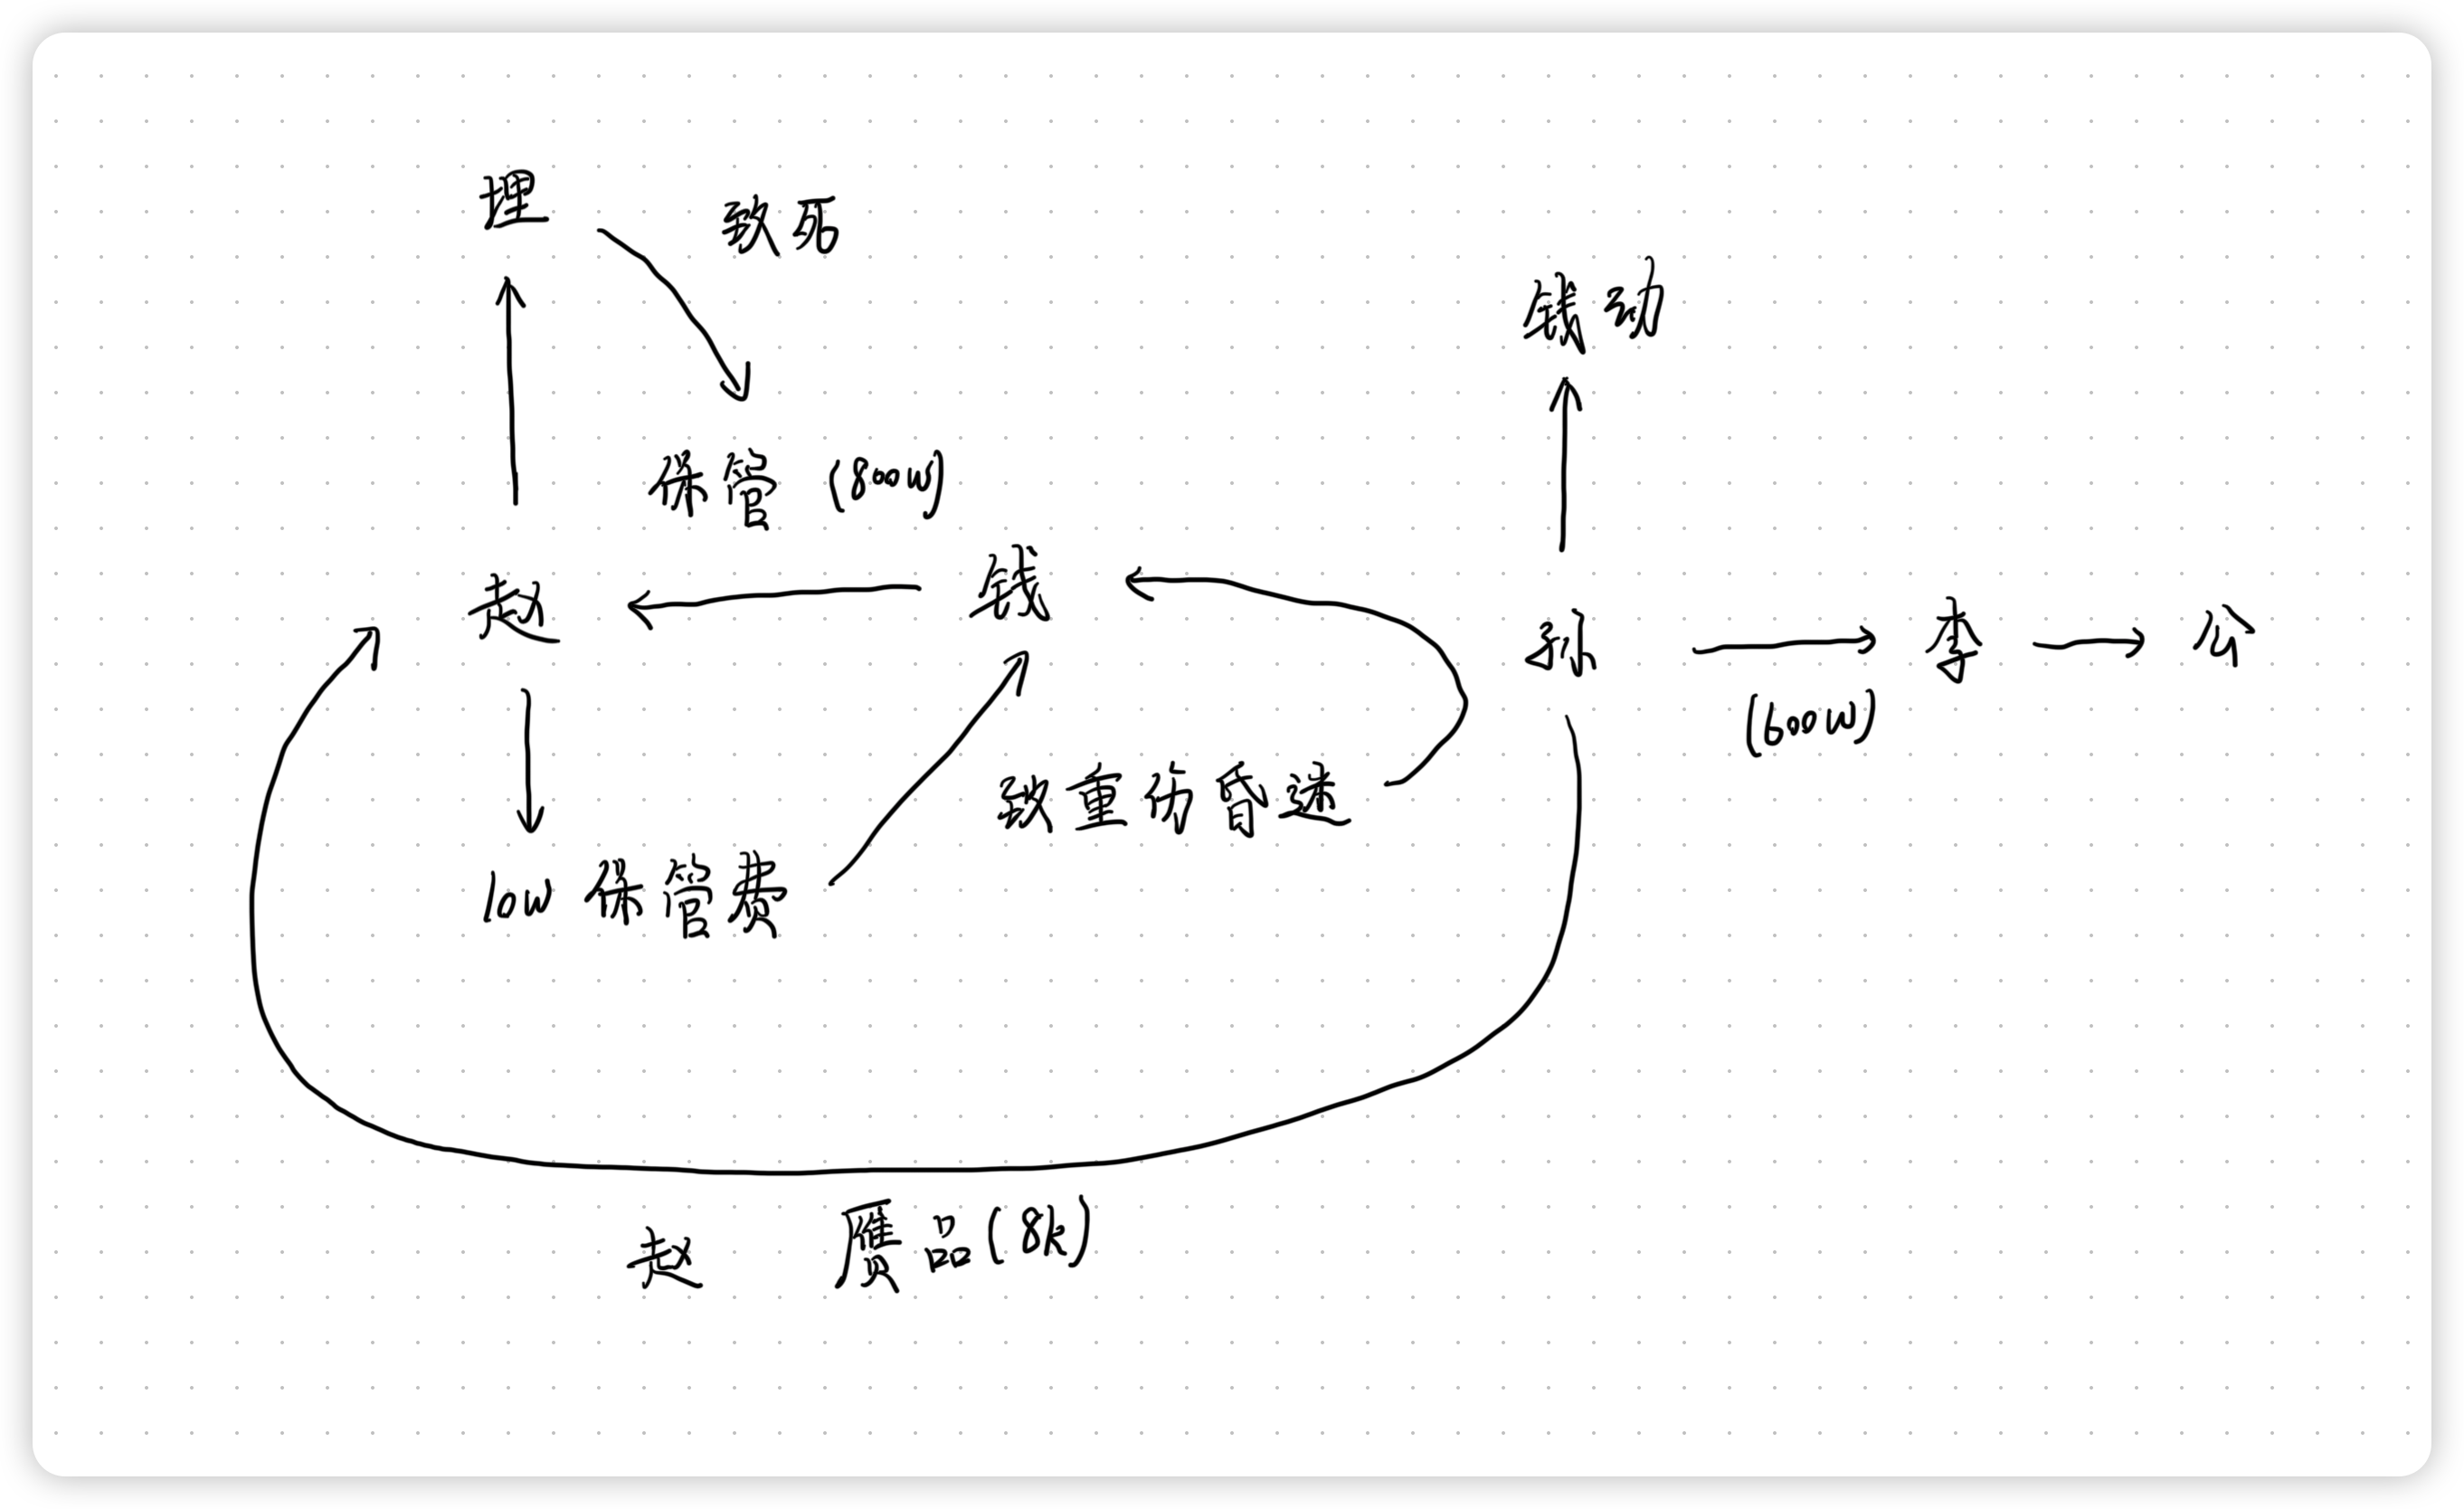 埋
致死
钱动
保管 (800W)
赵
钱
孙
李
公
(600W)
致重伤昏迷
10W 保管费
赵 赝品(8k)